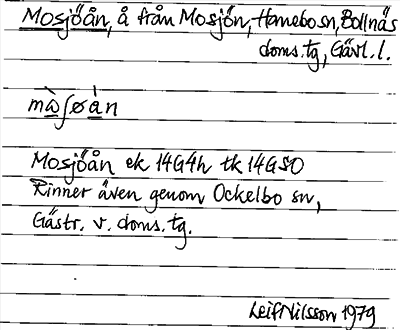 Mosjöån, å från Mosjön, Hamebo sn, Bollnäs
doms.tg, Gävl.l.
mὼʃøὰn
Mosjöån ek 14G4h tk 14GSO
Rinner även genom Ockelbo sn,
Gästr. v. doms.tg.
Leif Nilsson 1979